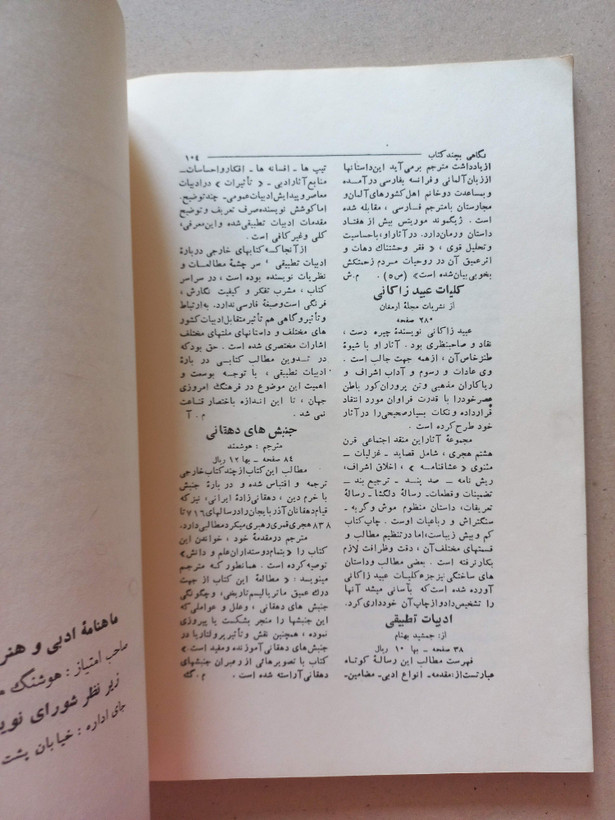 نگاهی بچند کتاب
۱۰۴
از یادداشت مترجم برمی‌آید این داستانها
از زبان آلمانی و فرانسه بفارسی در آمده
و بمساعدت دو خانم اهل کشورهای آلمان و
مجارستان با مترجم فارسی ، مقابله شده
است . ژیگموند موریتس بیش از هفتاد
داستان و رمان دارد. در آثار او، با حساسیت
و تحلیل قوی ، « فقر وحشتناک دهات و
اثر عمیق آن در روحیات مردم زحمتکش
بخوبی بیان شده است» (ص۵) . م.ش
کلیات عبید زاکانی
از نشریات مجلهٔ ارمغان
۲۸۰ صفحه
عبید زاکانی نویسندهٔ چیره دست ،
نقاد و صاحبنظری بود . آثار او با شیوهٔ
طنز خاص آن ، از همه جهت جالب است .
وی عادات و رسوم و آداب اشراف و
ریاکاران مذهبی و تن پروران کور باطن
عصر خود را با قدرت فراوان مورد انتقاد
قرار داده و نکات بسیار صحیحی را در آثار
خود طرح کرده است .
مجموعهٔ آثار این منتقد اجتماعی قرن
هشتم هجری ، شامل قصاید - غزلیات -
مثنوی « عشاقنامه » ، اخلاق اشراف،
ریش نامه - صد پند - ترجیع بند -
تضمینات و قطعات- رسالهٔ دلگشا - رسالهٔ
تعریفات، داستان منظوم موش و گربه -
سنگتراش و رباعیات اوست . چاپ کتاب
کم و بیش زیباست، اما در تنظیم مطالب و
قسمتهای مختلف آن ، دقت وظرافت لازم
بکار نرفته است . بعضی مطالب و داستان
های ساختگی نیز جزء کلیات عبید زاکانی
آورده شده است که بآسانی میشد آنها
را تشخیص داد و از چاپ آن خودداری کرد.
ادبیات تطبیقی
از: جمشید بهنام
۳۸ صفحه - بها ۱۰ ریال
فهرست مطالب این رسالهٔ کوتاه
عبارتست از: مقدمه- انواع ادبی- مضامین-
تیپ ها - افسانه ها - افکار و احساسات -
منابع آثار ادبی - « تأثیرات » در ادبیات
معاصر و پیدایش ادبیات عمومی- چند توضیح.
اما کوشش نویسنده صرف تعریف و توضیح
مقدمات ادبیات تطبیقی شده و این معرفی،
کلی و غیر کافی است .
از آنجا که کتابهای خارجی دربارهٔ
ادبیات تطبیقی ، سر چشمهٔ مطالعات و
نظریات نویسنده بوده است ، در سراسر
کتاب ، مشرب تفکر و کیفیت نگارش ،
فرنگی است و صبغهٔ فارسی ندارد. به ارتباط
و تأثیر و گاهی هم تأثیر متقابل ادبیات کشور
های مختلف و داستانهای ملتهای مختلف
اشارات مختصری شده است . حق بود که
در تدوین مطالب کتابی در بارهٔ
ادبیات تطبیقی ، با توجه بوسعت و
اهمیت این موضوع در فرهنگ امروزی
جهان ، تا این اندازه باختصار قناعت
نمی شد . م . آ
جنبش های دهقانی
مترجم : هوشمند
۸۴ صفحه - بها ۱۲ ریال
مطالب این کتاب از چند کتاب خارجی
ترجمه و اقتباس شده و در بارهٔ جنبش
با خرم دین ، دهقانی زادهٔ ایرانی ، نیز که
قیام دهقانان آذربایجان را در سالهای ۸۱۶ تا
۸۳۸ هجری قمری رهبری میکرد مطالبی دارد.
مترجم در مقدمهٔ خود ، خواندن این
کتاب را «بتمام دوستداران علم و دانش»
توصیه کرده است . همانطور که مترجم
مینویسد : «مطالعهٔ این کتاب از جهت
درک عمیق ماتریالیسم تاریخی، و چگونگی
جنبش های دهقانی ، و علل و عواملی که
این جنبشها را منجر بشکست یا پیروزی
نموده ، همچنین نقش و تأثیر پرولتاریا در
جنبش های دهقانی آموزنده و مفید است.»
کتاب با تصویرهائی از رهبران جنبشهای
دهقانی آراسته شده است .
ماهنامهٔ ادبی و هنر
صاحب امتیاز : هوشنگ
زیر نظر شورای نوی
جای اداره : خیابان پشت